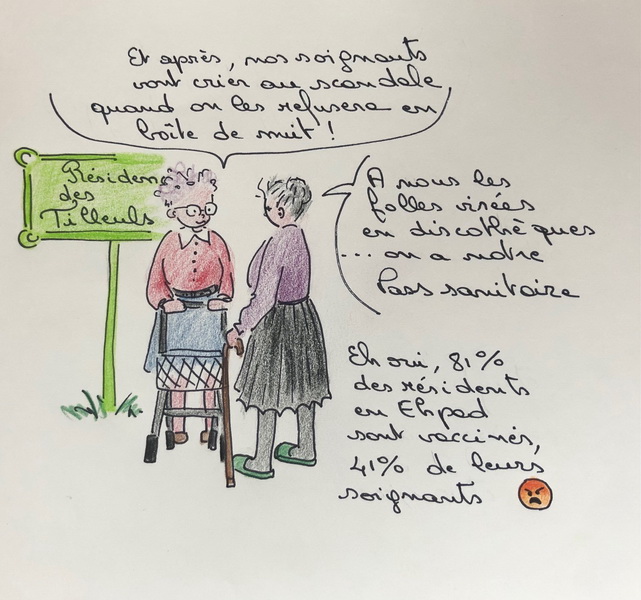 Et après, nos soignants
vont crier au scandale
quand on les refusera en
boîte de nuit !
Résidence
des
Tilleuls
A nous les
folles virées
en discothèques
... on a notre
Pass sanitaire
Eh oui, 81%
des résidents
en Ehpad
sont vaccinés,
41% de leurs
soignants